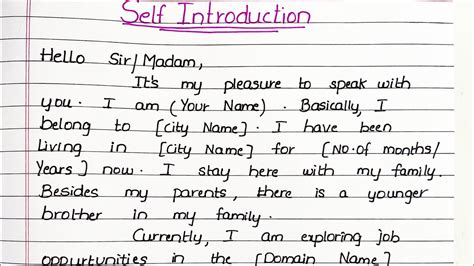 Self Introduction
Hello Sir/Madam,
It's my pleasure to speak with
you. I am (Your Name). Basically, I
belong to [City Name]. I have been
living in [City Name] for [No. of months/
Years] now. I stay here with my family.
Besides my parents, there is a younger
brother in my family.
Currently, I am exploring job
oppurtunities in the [Domain Name]